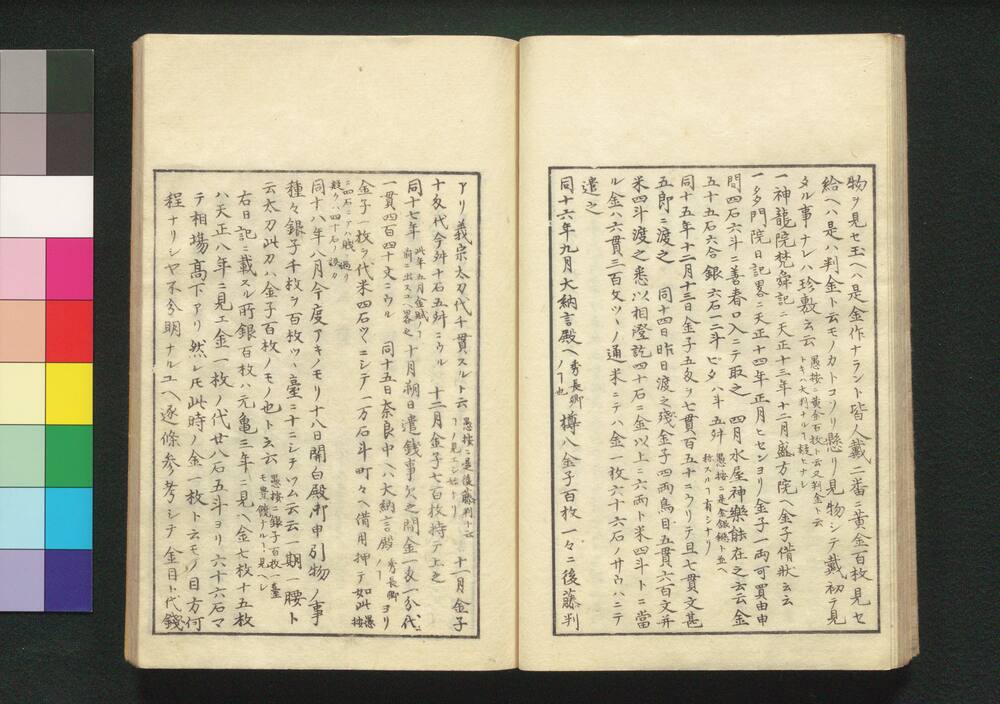 物ヲ見セ玉ヘハ是金作ナラント皆人戴二番ニ黄金百枚見セ
給ヘハ是ハ判金ト云モノカトコソリ懸リ見物シテ戴初テ見
タル事ナレハ珍敷云云 愚按ニ黄金百枚ト云又判金ト云
トキハ大判ナルヿ疑ヒナシ
一神龍院梵舜記ニ天正十三年十二月盛方院ヘ金子借状云云
一多門院日記畧ニ天正十四年正月ヒセンヨリ金子一両可買由申
間四石六斗ニ善春口入ニテ取之 四月水屋神樂能在之云云金
五十五石六合銀六石一二斗ビタ八斗五舛 愚按ニ是金銀銭ト並ヘ
称スルヿ有シナリ
同十五年十二月十三日金子五匁ヲ七貫百五十ニウリテ且七貫文甚
五郎ニ渡之 同十四日昨日渡之殘金子四両鳥目五貫六百文并
米四斗渡之悉以相澄訖四十石ニ金以上ニ六両ト米四斗ト二當
ル金ハ六貫三百文ツヽノ通米ニテハ金一枚六十六石ノサウハニテ
遣之
同十六年九月大納言殿ヘ 秀長卿
ノヿ也 樽八金子百枚一々ニ後藤判
アリ義宗太刀代千貫スルト云 愚按ニ是後藤判ト云
ヿノ見エシ始ナリ 十一月金子
十匁代今舛十石五舛ニウル 十二月金子七百枚持テ上之
同十七年 此年五月金賦ノヿ
前ニ出スユヘ畧之 十月朔日遣銭事欠之間金一匁一分代
一貫四百四十文ニウル 同十五日奈良中ヘ大納言殿 秀長卿
ノヿ ヨリ
金子一枚ヲ代米四石ツヽニシテ一万石斗町々ヘ借用押テ如此 愚按
ニ四石ニテハ賎過リ
疑クハ四十石ノ誤カ
同十八年八月今度アキノモリ十八日開白殿ヘ申列物ノ事
種々銀子千枚ヲ百枚ツヽ臺ニ十ニシテツム云云一期一腰ト
云太刀此刀ハ金子百枚ノモノ也ト云云 愚按ニ銀子百枚一臺
モ豊饒ナルヿ見ヘシ
右日記ニ載スル所銀百枚ハ元亀三年ニ見ヘ金七枚十五枚
ハ天正八年ニ見エ金一枚ノ代廿八石五斗ヨリ六十六石マ
テ相場高下アリ然シ𪜈此時ノ金一枚ト云モノ目方何
程ナリシヤ不分明ナルユヘ逐條参考シテ金目ト代錢